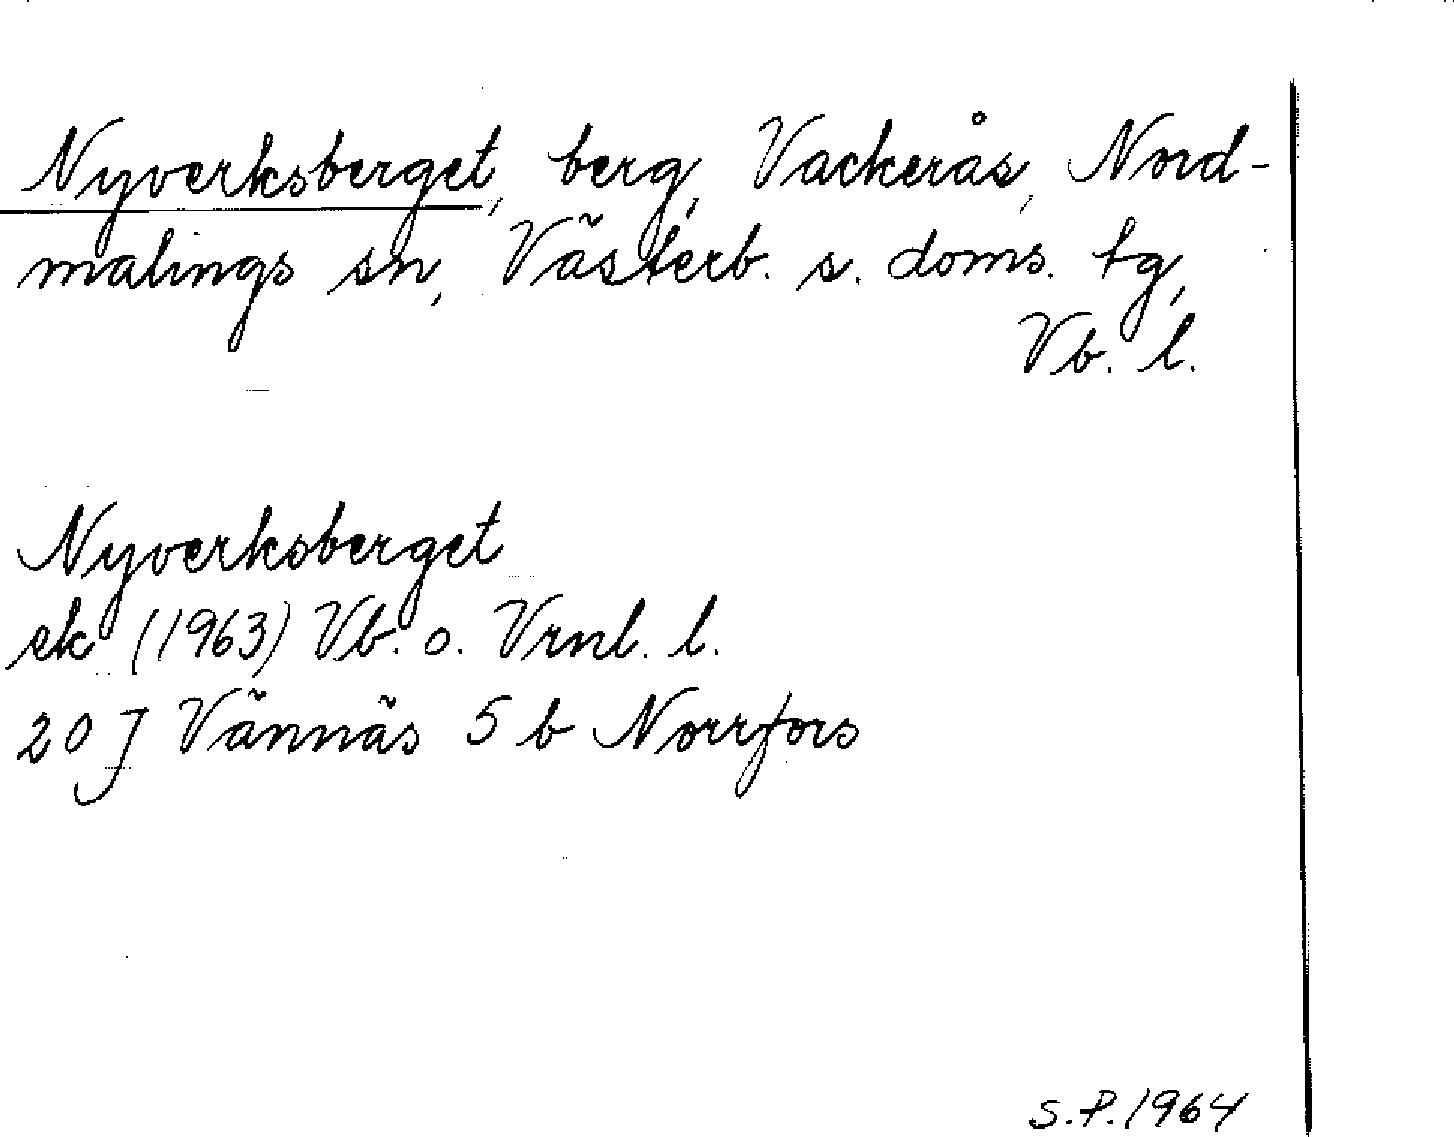 Nyverksberget, berg, Vackerås, Nord-
malings sn, Västerb. s. doms. tg,
Vb. l.
Nyverksberget
ek (1963) Vb. o. Vrnl. l.
20 J Vännäs 5 b Norrfors
S.P. 1964